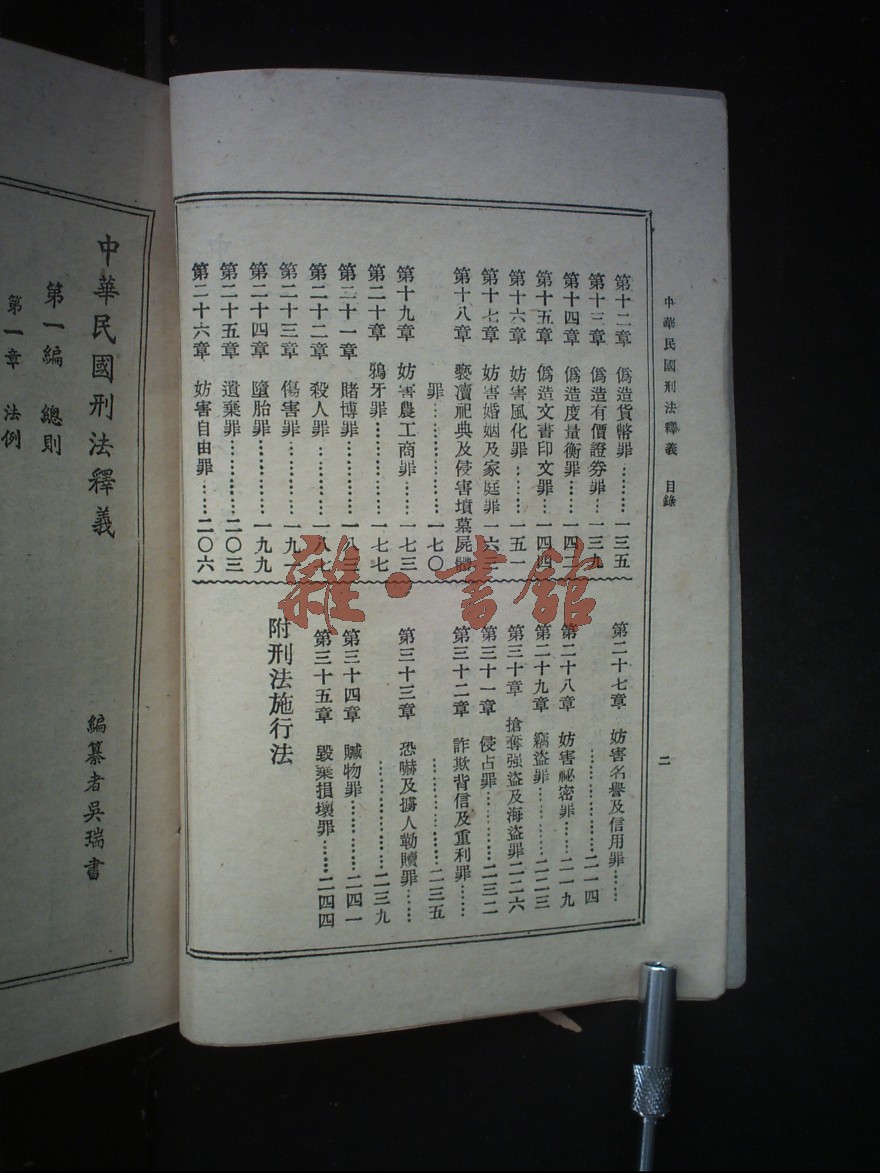 中華民國刑法釋義　目錄
二
第十二章　僞造貨幣罪………一三五
第十三章　僞造有價證券罪……一三九
第十四章　僞造度量衡罪………一四二
第十五章　僞造文書印文罪……一四四
第十六章　妨害風化罪…………一五一
第十七章　妨害婚姻及家庭罪
第十八章　褻瀆祀典及侵害墳墓屍體
罪…………………一七〇
第十九章　妨害農工商罪………一七三
第二十章　鴉片罪………………一七七
第二十一章　賭博罪……………一八三
第二十二章　殺人罪……………一八七
第二十三章　傷害罪……………一九一
第二十四章　墮胎罪……………一九九
第二十五章　遺棄罪……………二〇三
第二十六章　妨害自由罪………二〇六
第二十七章　妨害名譽及信用罪……
…………………二一四
第二十八章　妨害祕密罪………二一九
第二十九章　竊盜罪……………二二三
第三十章　搶奪强盜及海盜罪二二六
第三十一章　侵占罪……………二三二
第三十二章　詐欺背信及重利罪……
…………………二三五
第三十三章　恐嚇及擄人勒贖罪……
…………………二三九
第三十四章　贓物罪……………二四一
第三十五章　毀棄損壞罪………二四四
附刑法施行法
中華民國刑法釋義
編纂者吳瑞書
第一編　總則
第一章　法例
雜·書館